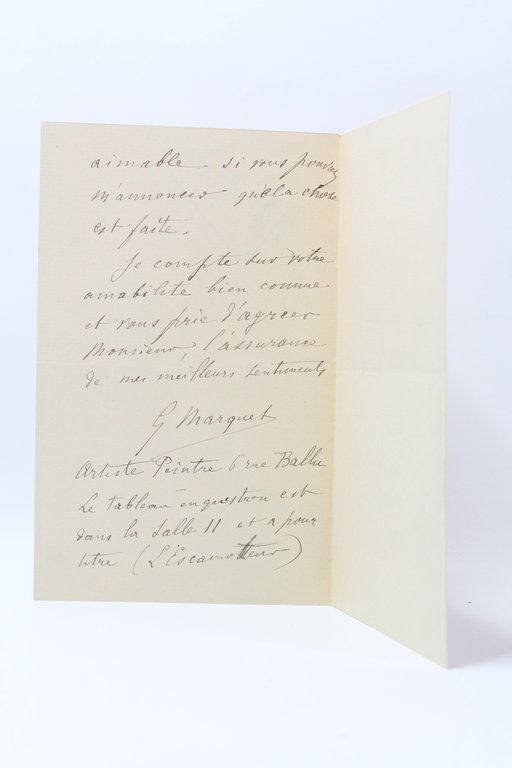 aimable si vous pouviez
m'annoncer que la chose
est faite.
Je compte sur votre
amabilité bien connue
et vous prie d'agréer
Monsieur, l'assurance
de mes meilleurs sentiments
G Marquet
Artiste Peintre 6 rue Ballu
Le tableau en question est
dans la salle 11 et a pour
titre (L'Escamoteur)